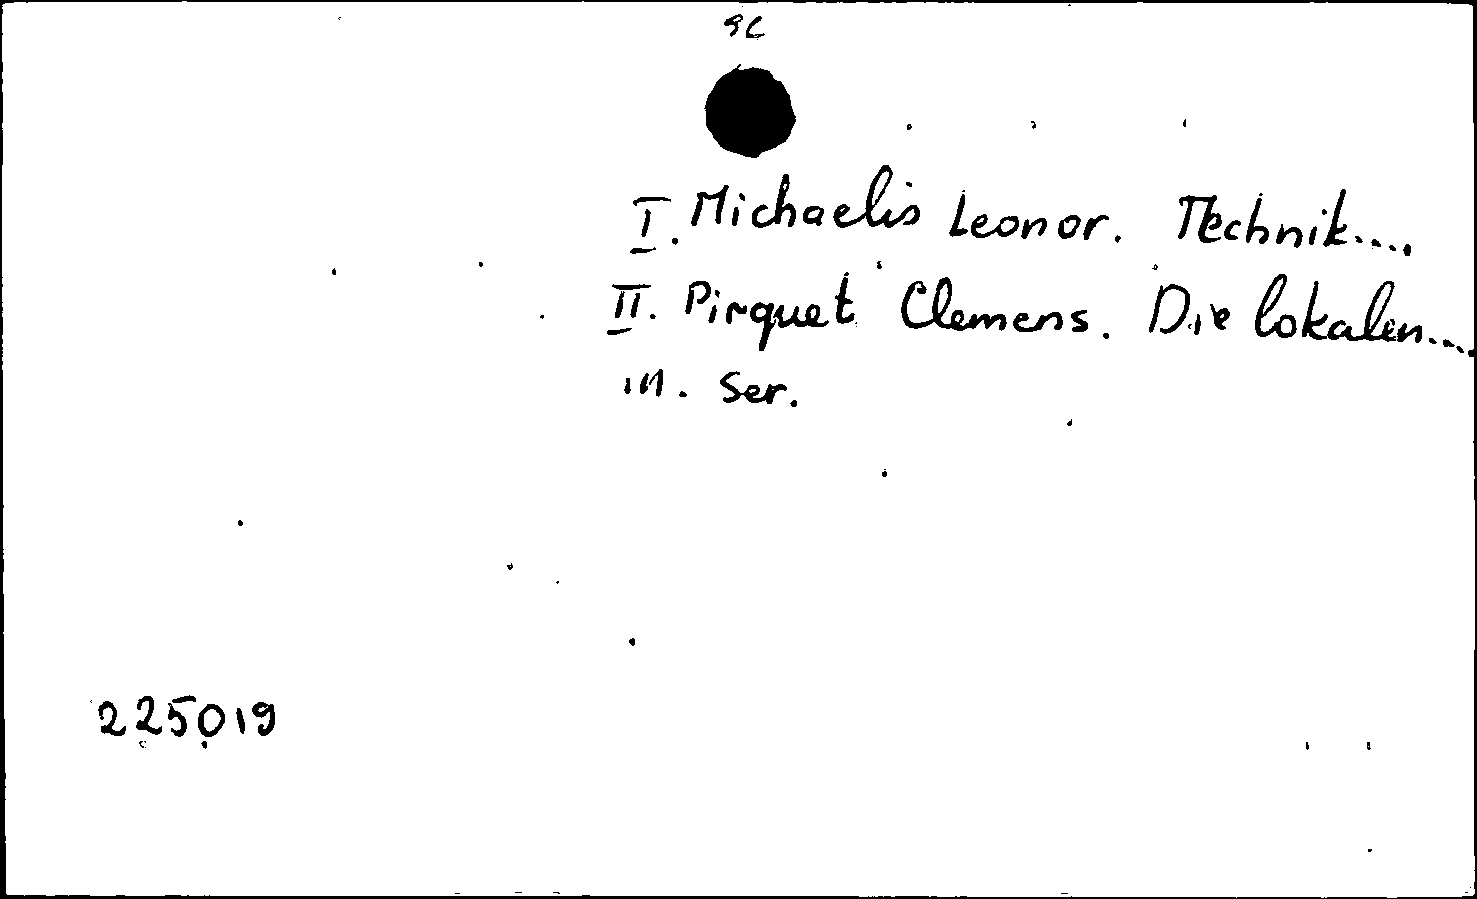 I. Michaelis Leonor. Technik....
II. Pirquet Clemens. Die lokalen....
III. Ser.
225019